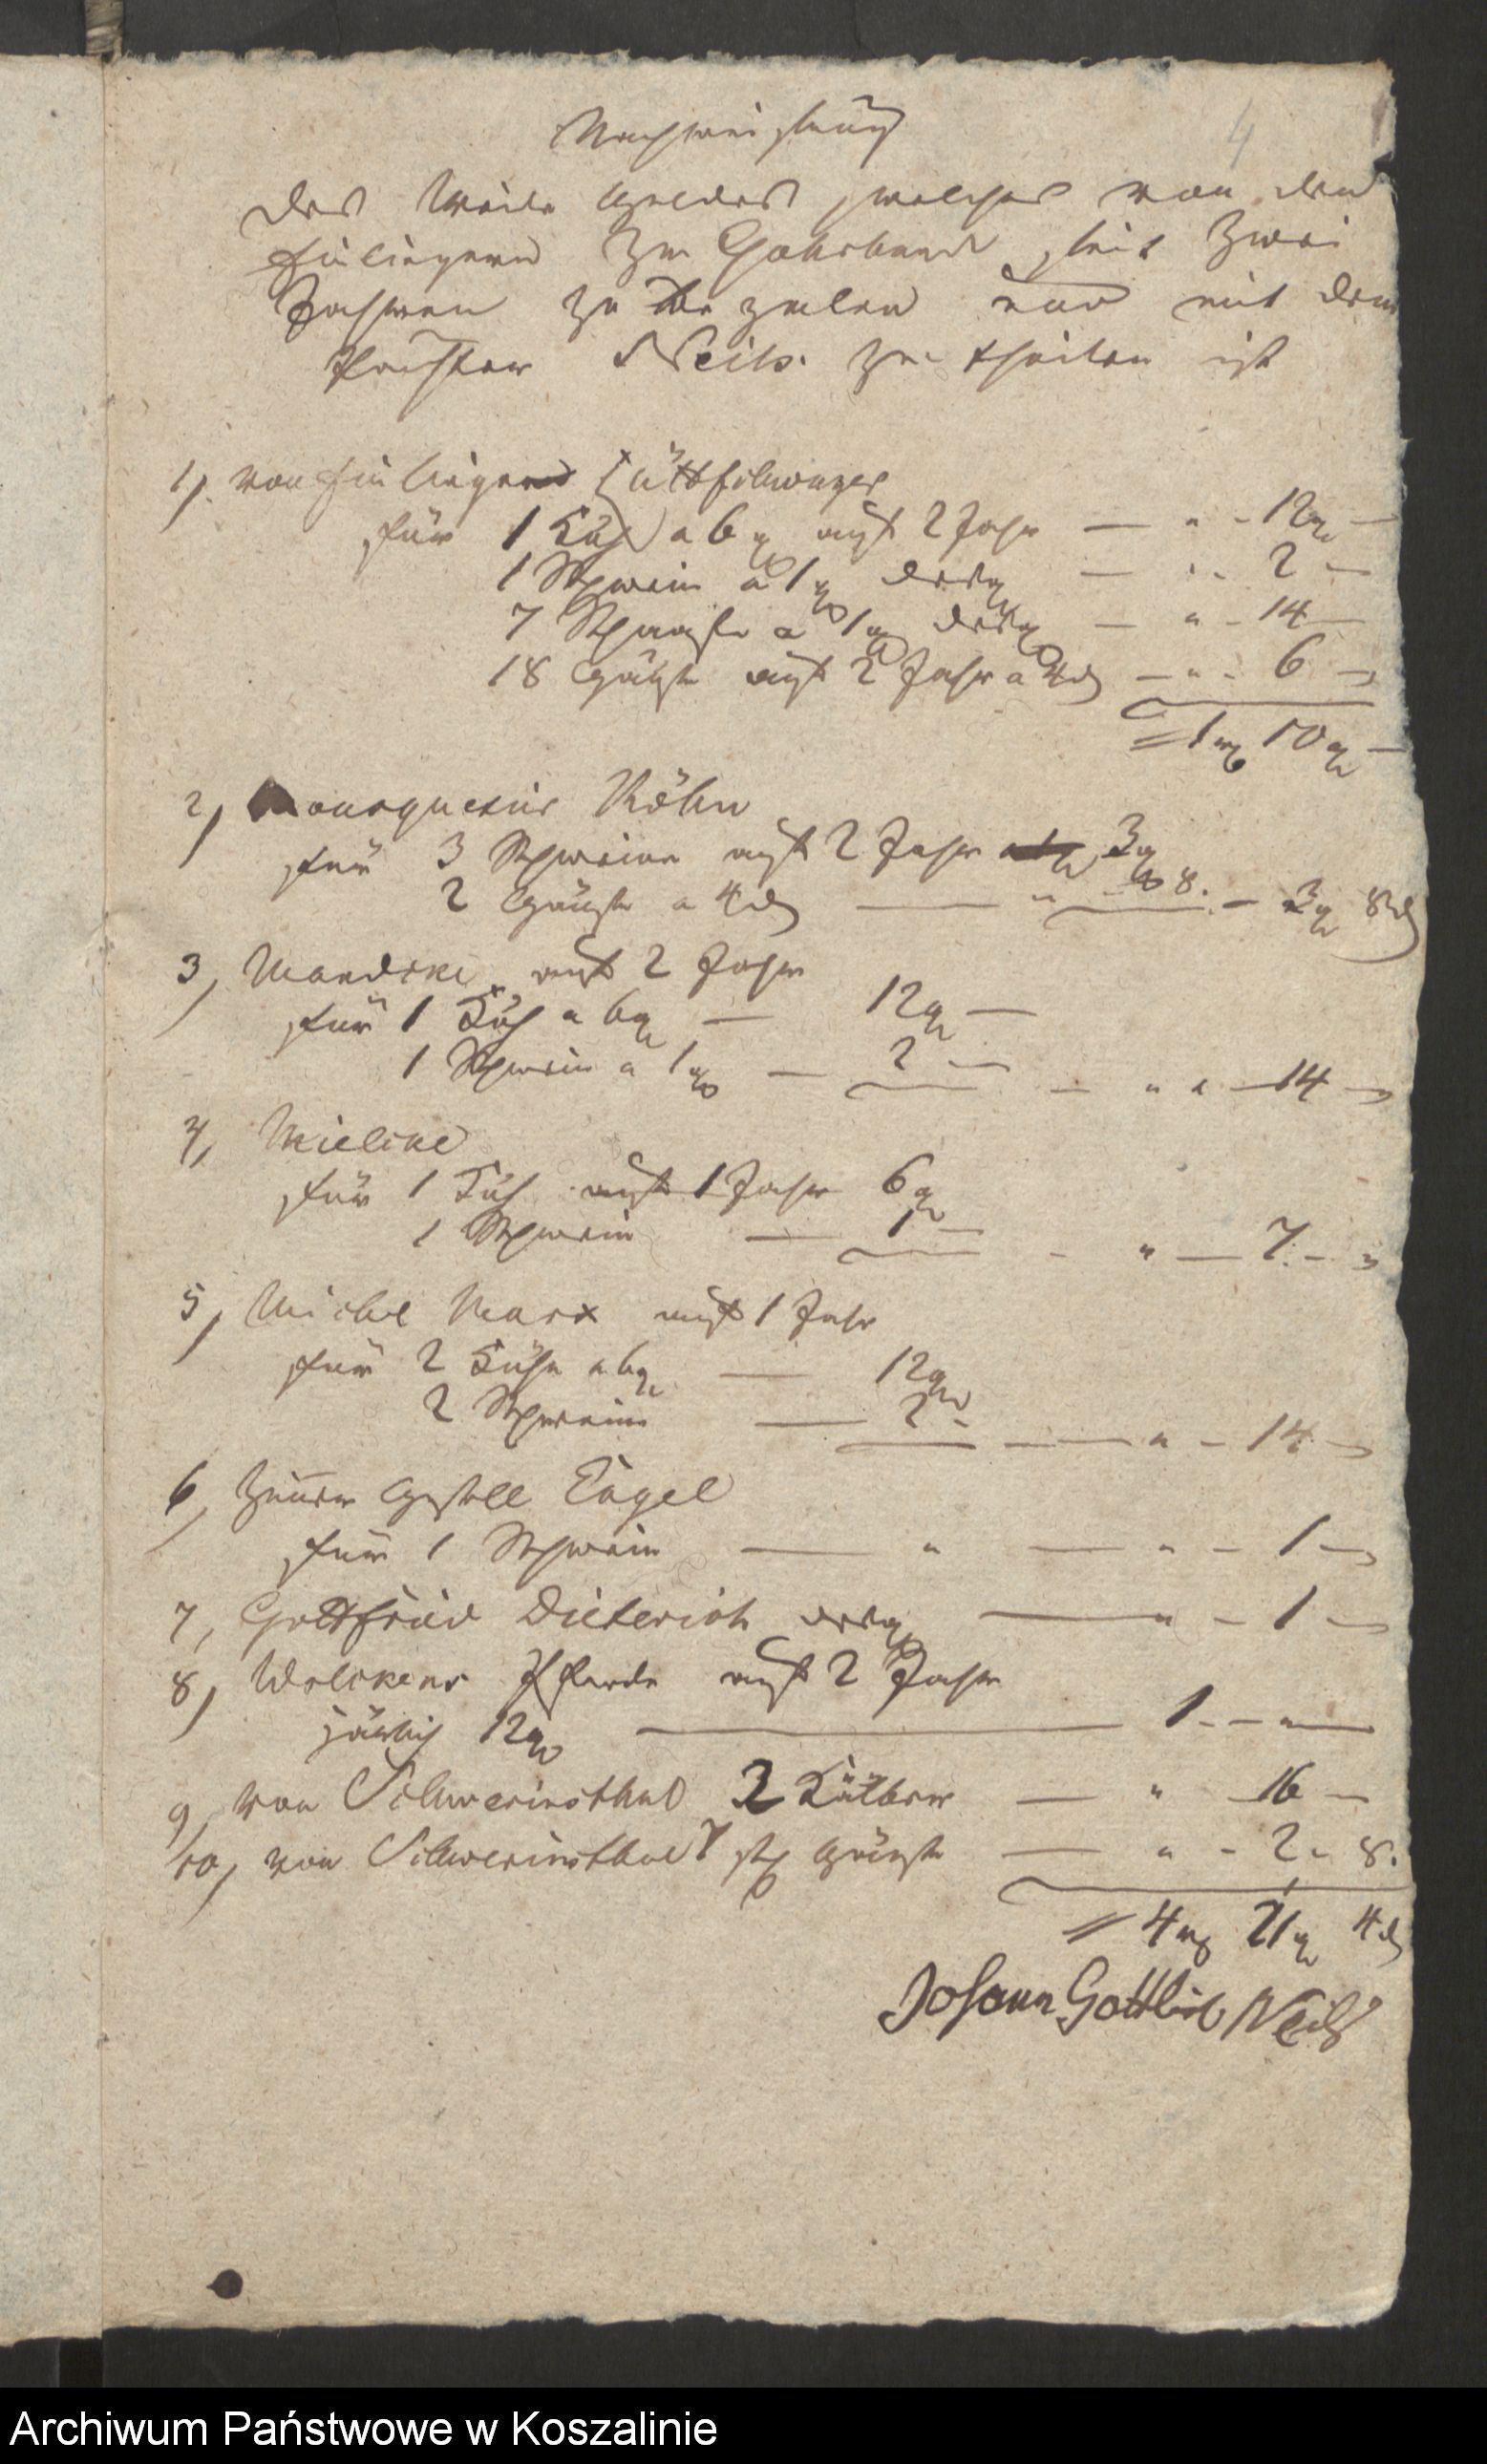 Nachweisung
4
des Weide Geldes, welches von den
Einliegern zu Gohrband seit zwei
Jahren zu bezalen und mit dem
Pächter Neils zu theilen ist
1) von Einlieger
für 1 Kuh a 6 g auf 2 Jahr — " - 12 g —
1 Schwein a 1 g desgl — " - 2 —
7 Schaafe a 1 g desgl — " - 14 —
18 Gänse auf 2 Jahr a 4 d — " - 6 —
= 1 rt 10 g —
2) Röhn
für 3 Schweine auf 2 Jahr 3 g
2 Gänse a 4 d — " — 8. — 3 g 8 d
3, Mandike auf 2 Jahr
für 1 Kuh a 6 g — 12 g —
1 Schwein a 1 g — 2 — — " " — 14 —
4, Mielike
für 1 Kuh auf 1 Jahr 6 g
1 Schwein — 1 — - " — 7. —
5, Michel Marx auf 1 Jahr
für 2 Kühe a 6 g — 12 g
2 Schweine — 2 - — " — 14 —
6, Zimmer Gesell Engel
für 1 Schwein — " — " — 1 —
7, Gottfried Dieterich desgl — " — 1 —
8, Wolckens Pferde auf 2 Jahr
järlich 12 g — 1 - — " —
9, von Schwerinsthal 2 Kälber — " 16 —
10, von Schwerinsthal 7 stk Gänse — " - 2 " 8.
= 4 rt 21 g 4 d
Johann Gottlieb Neils
Archiwum Państwowe w Koszalinie